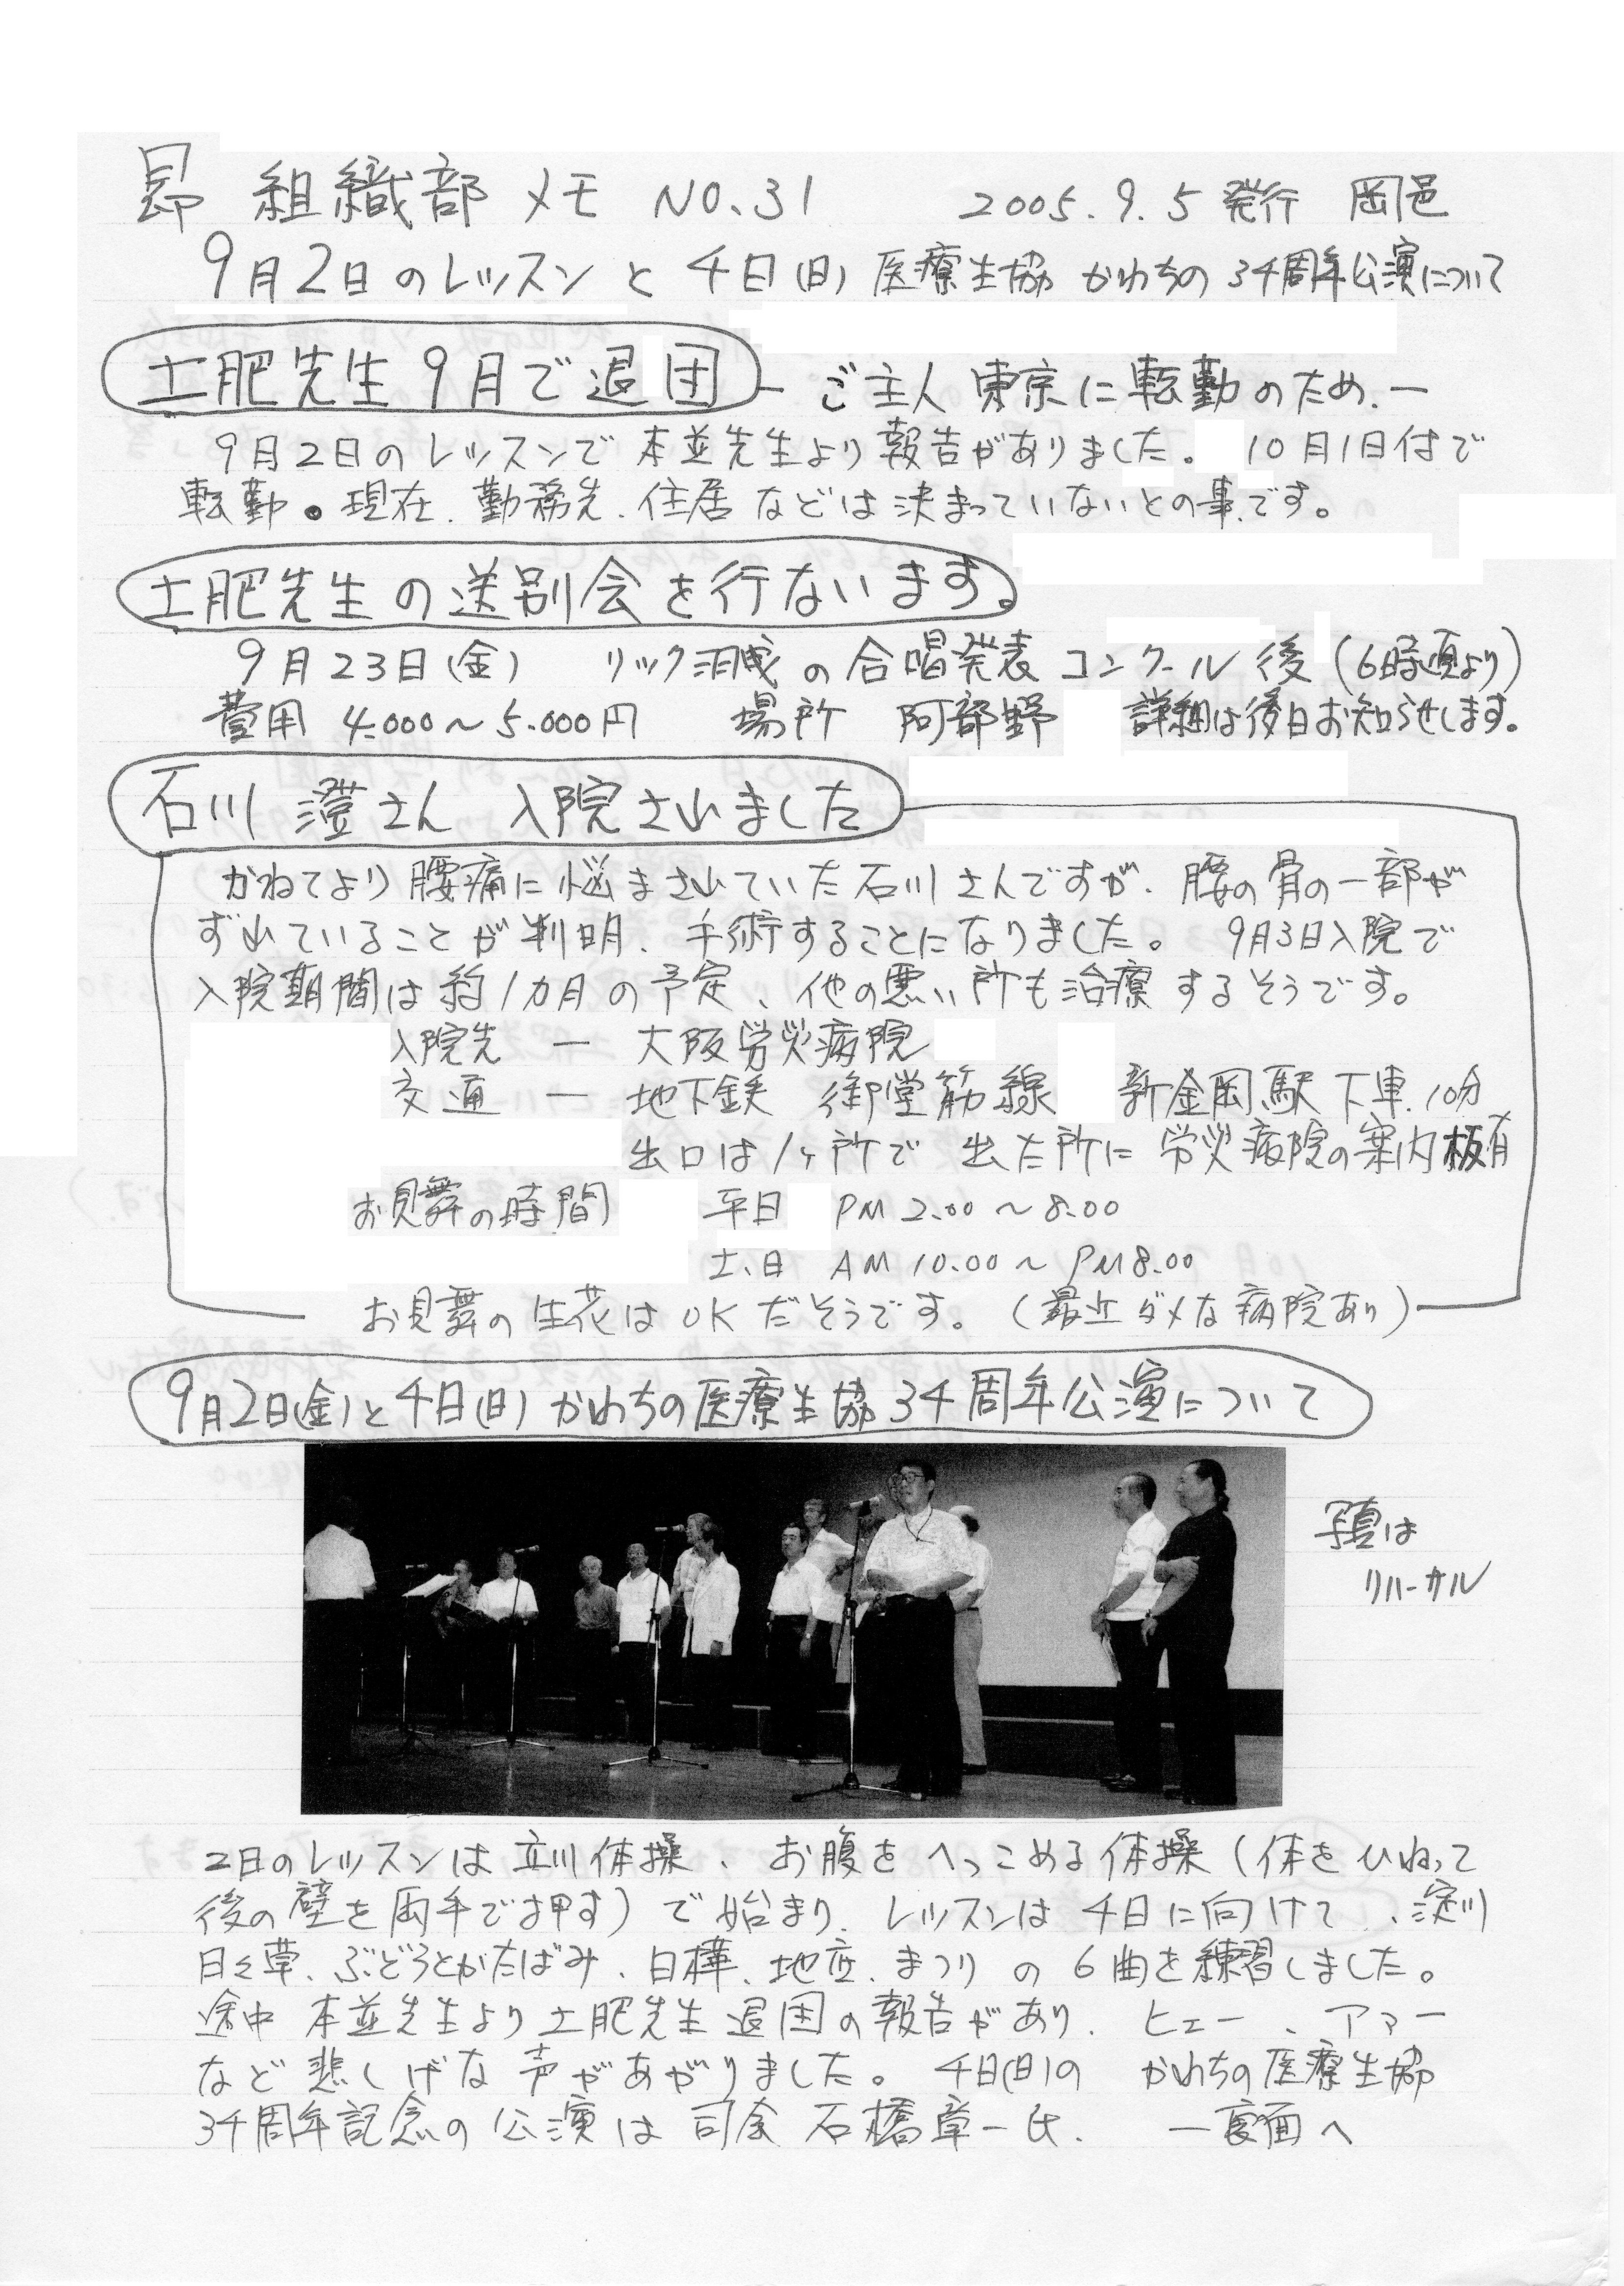 昴 組織部メモ NO.31 2005.9.5発行 岡邑
9月2日のレッスンと4日(日)医療生協かわちの34周年公演について
土肥先生9月で退団 ― ご主人東京に転勤のため. ―
9月2日のレッスンで本並先生より報告がありました。 10月1日付で
転勤。現在.勤務先.住居などは決まっていないとの事です。
土肥先生の送別会を行ないます。
9月23日(金) リック羽曳の合唱発表コンクール後(6時頃より)
費用 4.000〜5.000円 場所 阿部野 詳細は後日お知らせします。
石川 澄さん 入院されました
かねてより腰痛に悩まされていた石川さんですが、腰の骨の一部が
ずれていることが判明、手術することになりました。 9月3日入院で
入院期間は約1カ月の予定、他の悪い所も治療するそうです。
入院先 ― 大阪労災病院
交通 ― 地下鉄 御堂筋線 新金岡駅下車.10分
出口は1ヶ所で 出た所に 労災病院の案内板有
お見舞の時間 平日 PM 2.00〜8.00
土、日 AM 10.00〜PM8.00
お見舞の生花はOKだそうです。(最近ダメな病院あり)
9月2日(金)と4日(日)かわちの医療生協34周年公演について
写真は
リハーサル
2日のレッスンは立川体操、お腹をへっこめる体操(体をひねって
後の壁を両手で押す)で始まり、レッスンは4日に向けて、淀川
日々草、ぶどうとかたばみ、白樺、地底、まつりの6曲を練習しました。
途中本並先生より土肥先生退団の報告があり、ヒェー、アァー
など悲しげな声があがりました。 4日(日)の かわちの医療生協
34周年記念の公演は司会 石橋章一氏. ―裏面へ